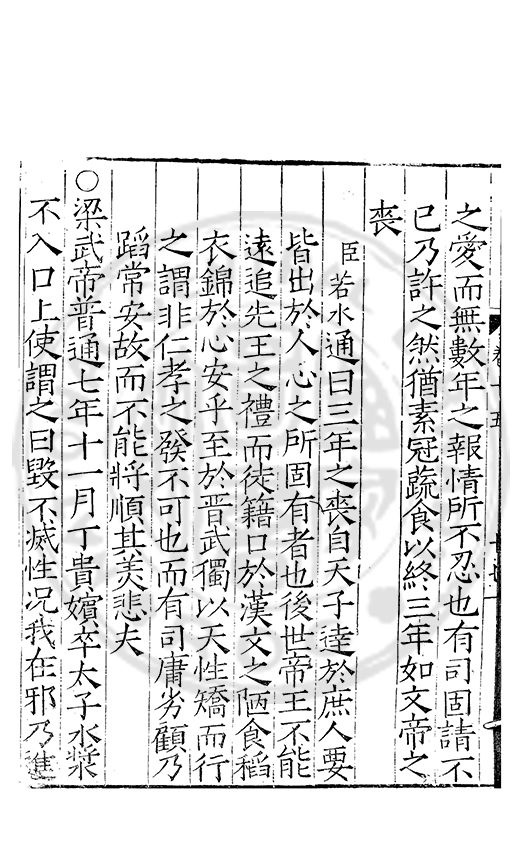 之愛而無數年之報情所不忍也有司固請不
已乃許之然猶素冠蔬食以終三年如文帝之
喪
臣若水通曰三年之喪自天子達於庶人要
皆出於人心之所固有者也後世帝王不能
遠追先王之禮而徒籍口於漢文之陋食稻
衣錦於心安乎至於晋武獨以天性矯而行
之謂非仁孝之發不可也而有司庸劣顧乃
蹈常安故而不能將順其美悲夫
○梁武帝普通七年十一月丁貴嬪卒太子水漿
不入口上使謂之曰毀不滅性况我在邪乃進